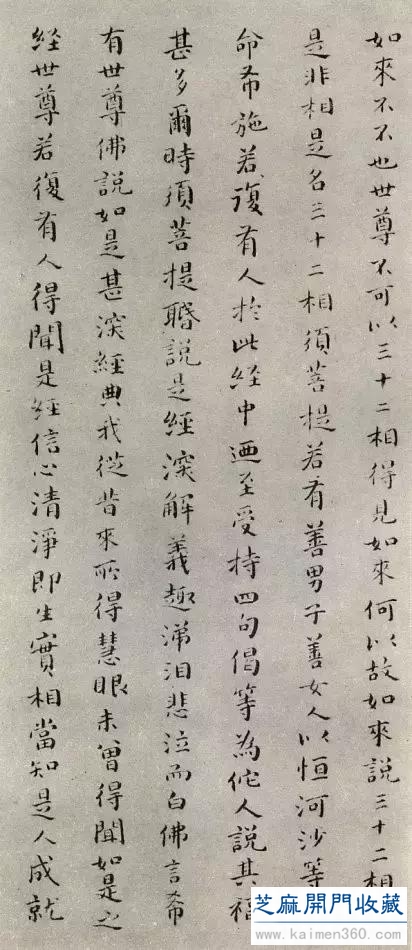 如來不不也世尊不可以三十二相得見如來何以故如來說三十二相
是非相是名三十二相須菩提若有善男子善女人以恒河沙等
命布施若復有人於此経中迺至受持四句偈等為佗人說其福
甚多爾時須菩提聞說是經深解義趣涕泪悲泣而白佛言希
有世尊佛說如是甚深經典我従昔來所得慧眼未曾得聞如是之
経世尊若復有人得聞是經信心清淨即生實相當知是人成就
芝麻開門收藏
www.kaimen360.com